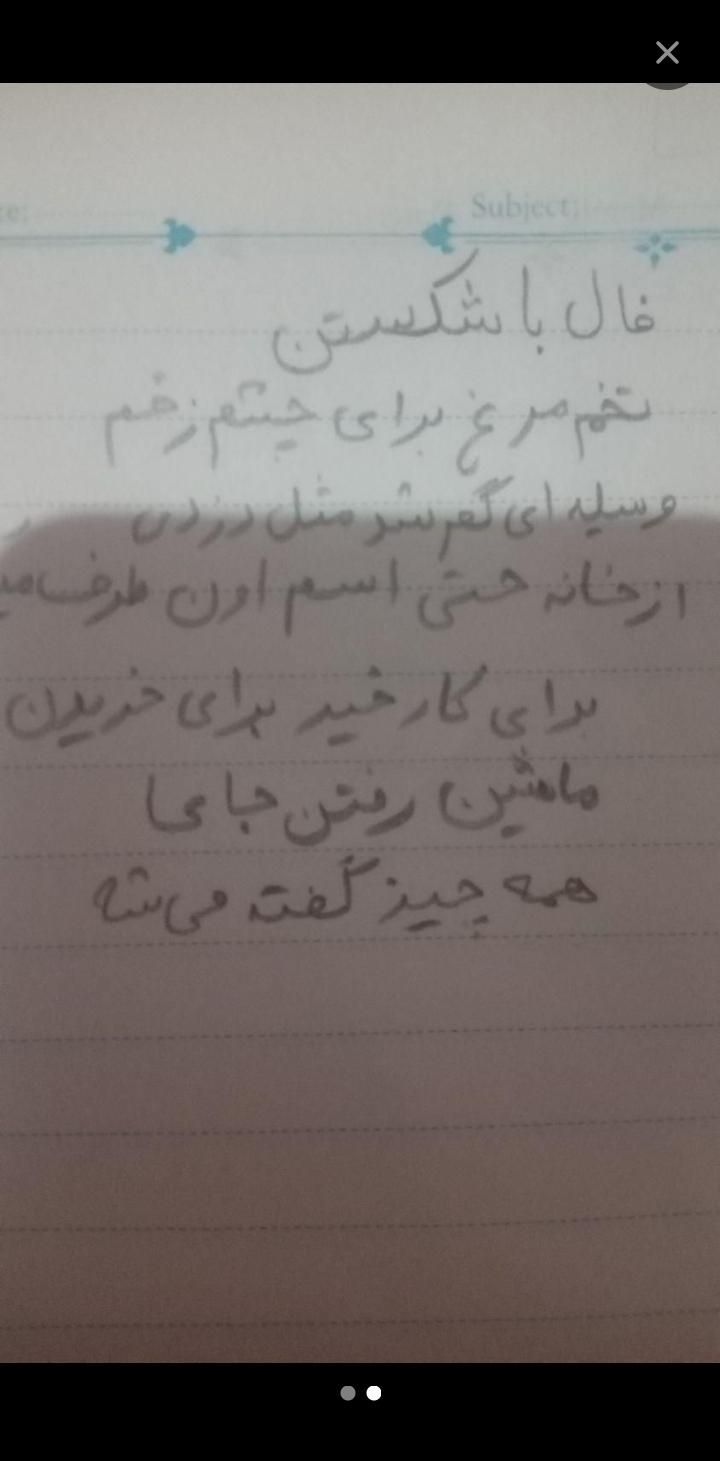 Subject:
فال با شکستن
تخم مرغ برای چشم زخم
وسیله ای گم شد مثل دزدی
از خانه حتی اسم اون طرف
برای کار خیر برای خریدن
ماشین رفتن جای
همه چیز گفته می شه